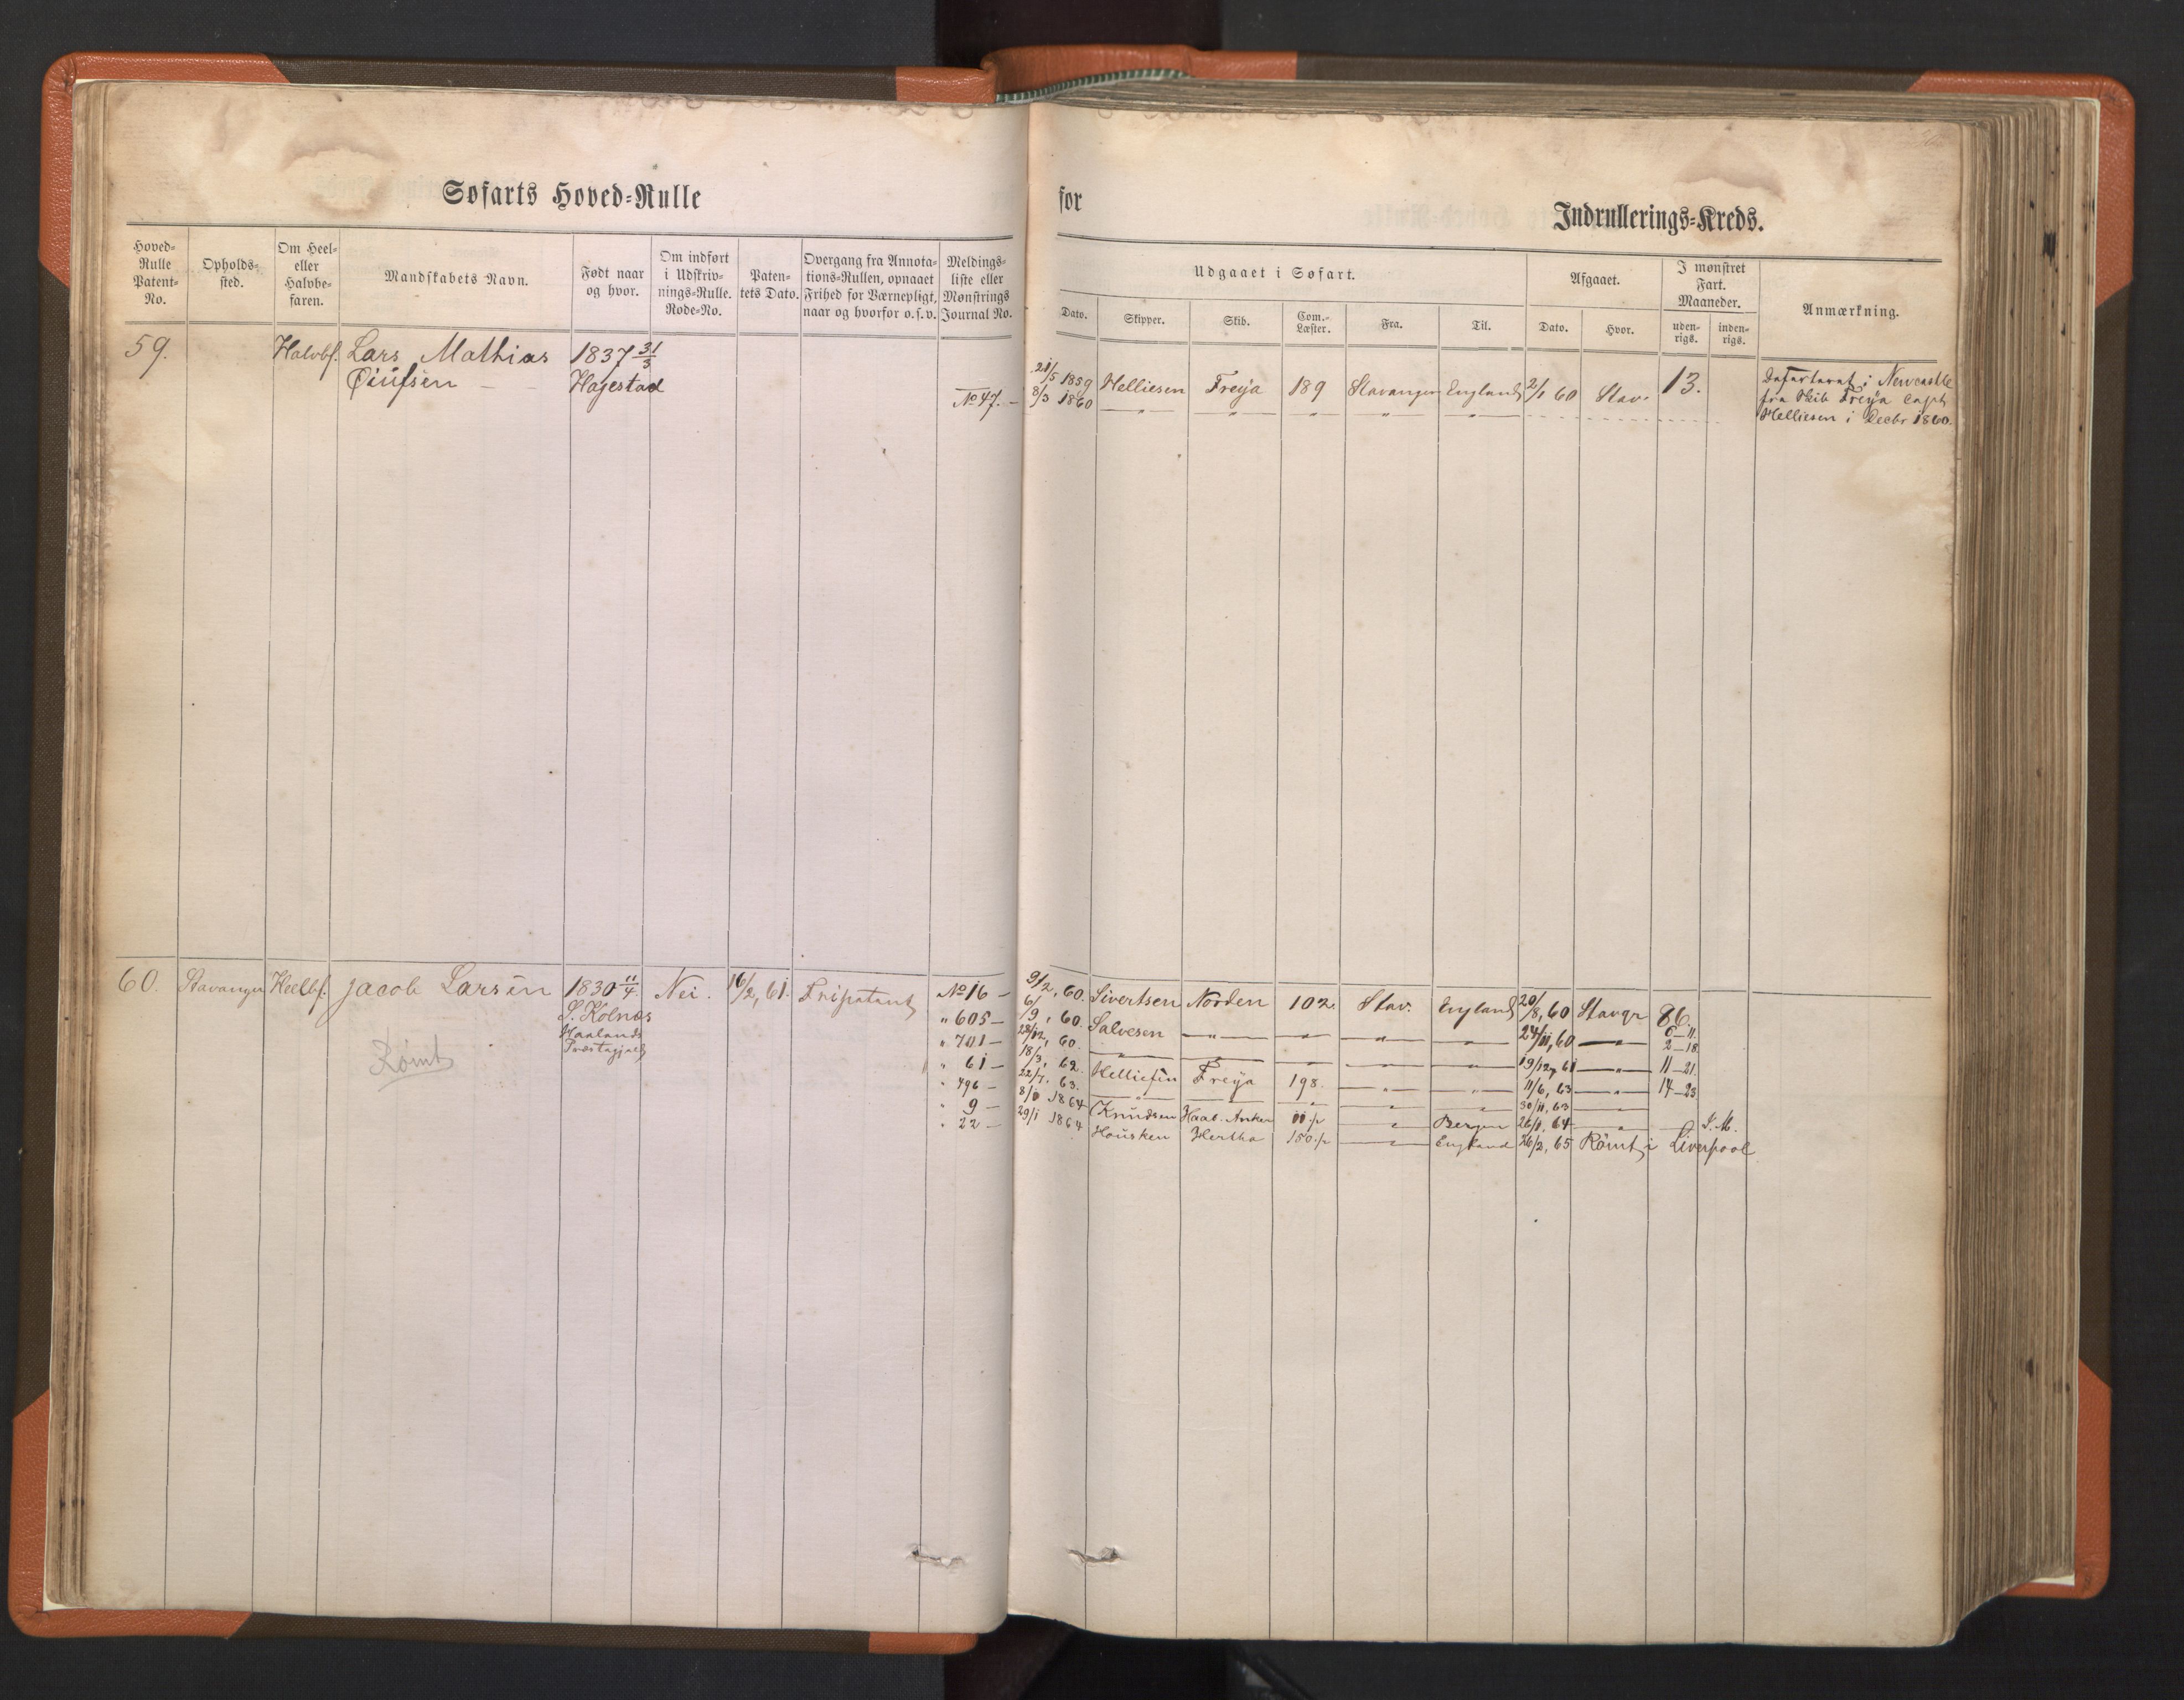 Søfarts Hoved-Rulle
for
Indrullerings-Kreds.
Hoved-Rulle Patent-No.
Opholds-sted.
Om Heel- eller Halvbe-faren.
Mandskabets Navn.
Født naar og hvor.
Om indført i Udskriv-nings-Rulle. Rode-No.
Paten-tets Dato.
Overgang fra Annota-tions-Rullen, opnaaet Frihed for Værnepligt, naar og hvorfor o.s.v.
Meldings-liste eller Mønstrings Journal No.
Udgaaet i Søfart.
Dato.
Skipper.
Skib.
Com.-Læster.
Fra.
Til.
Afgaaet.
Dato.
Hvor.
I mønstret Fart. Maaneder.
uden-rigs.
inden-rigs.
Anmærkning.
59. Halvbf. Lars Mathias 1837 31/3
Hagestad
21/5 1859 Helliesen Freya 189 Stavanger England 2/1 60 Stav. 13.
No 47. — 8/3 1860 — " — — " — — " — — " — — " —
i Newcastle
fra Skib Freya Capt
Helliesen i Decbr 1860.
60. Stavanger Heelbf. Jacob Larsen 1830 11/4 Nei. 16/2, 61. Fripatent
Haalands
Præstegjeld
Rømt
No 16 — 9/2, 60. Sivertsen Norden 102. Stav. England 20/8, 60 Stavgr 86.
" 605 — 6/9, 60. Salvesen — " — — " — — " — — " — 24/11, 60 — " — 2 — 18.
" 701 — 28/12, 60. — " — — " — 19/12, 61 — " — 11 — 21.
" 61 — 18/3, 62. Helliesen Freya 198. — " — " 11/6, 63 — " — 14 — 23
" 496 — 22/7, 63. — " — 30/11, 63 —
" 9 — 1864 Knudsen Haab. Anker — " — Bergen 64 — " —
" 22 — 29/1 1864 Housken Hertha 150. — " — England 26/2, 65 Rømt i Liverpool